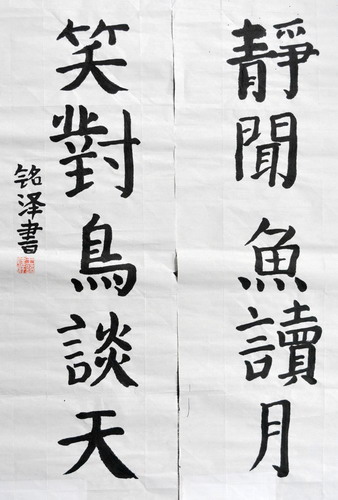 靜聞魚讀月
笑對鳥談天
铭泽書